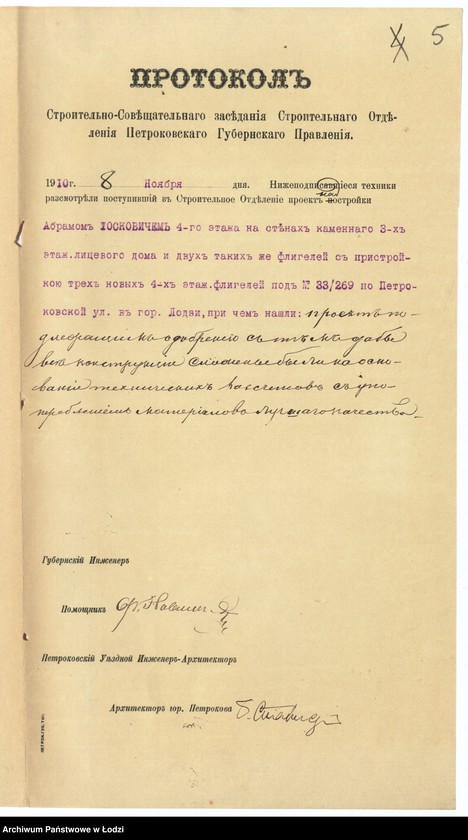 4 5
ПРОТОКОЛЪ
Строительно-Совѣщательнаго засѣданія Строительнаго Отдѣ-
ленія Петроковскаго Губернскаго Правленія.
1910г. 8 Ноября дня. Нижеподписавшіеся техники
разсмотрѣли поступившій въ Строительное Отдѣленіе проектъ надстройки
Абрамомъ ІОСКОВИЧЕМЪ 4-го этажа на стѣнахъ каменнаго 3-хъ
этаж.лицевого дома и двухъ такихъ же флигелей съ пристрой-
кою трехъ новыхъ 4-хъ этаж.флигелей подъ № 33/269 по Петро-
ковской ул. въ гор. Лодзи, при чемъ нашли: проектъ по-
длежащимъ одобренію съ тѣмъ дабы
всѣ конструкціи сложныя были на осно-
ваніи техническихъ разсчетовъ съ упо-
требленіемъ матеріаловъ лучшаго качества.
Губернскій Инженеръ
Помощникъ
Петроковскій Уѣздной Инженеръ-Архитекторъ
Архитекторъ гор. Петрокова
ПЕТРОК.ГУБ.ТИП.
Archiwum Państwowe w Łodzi